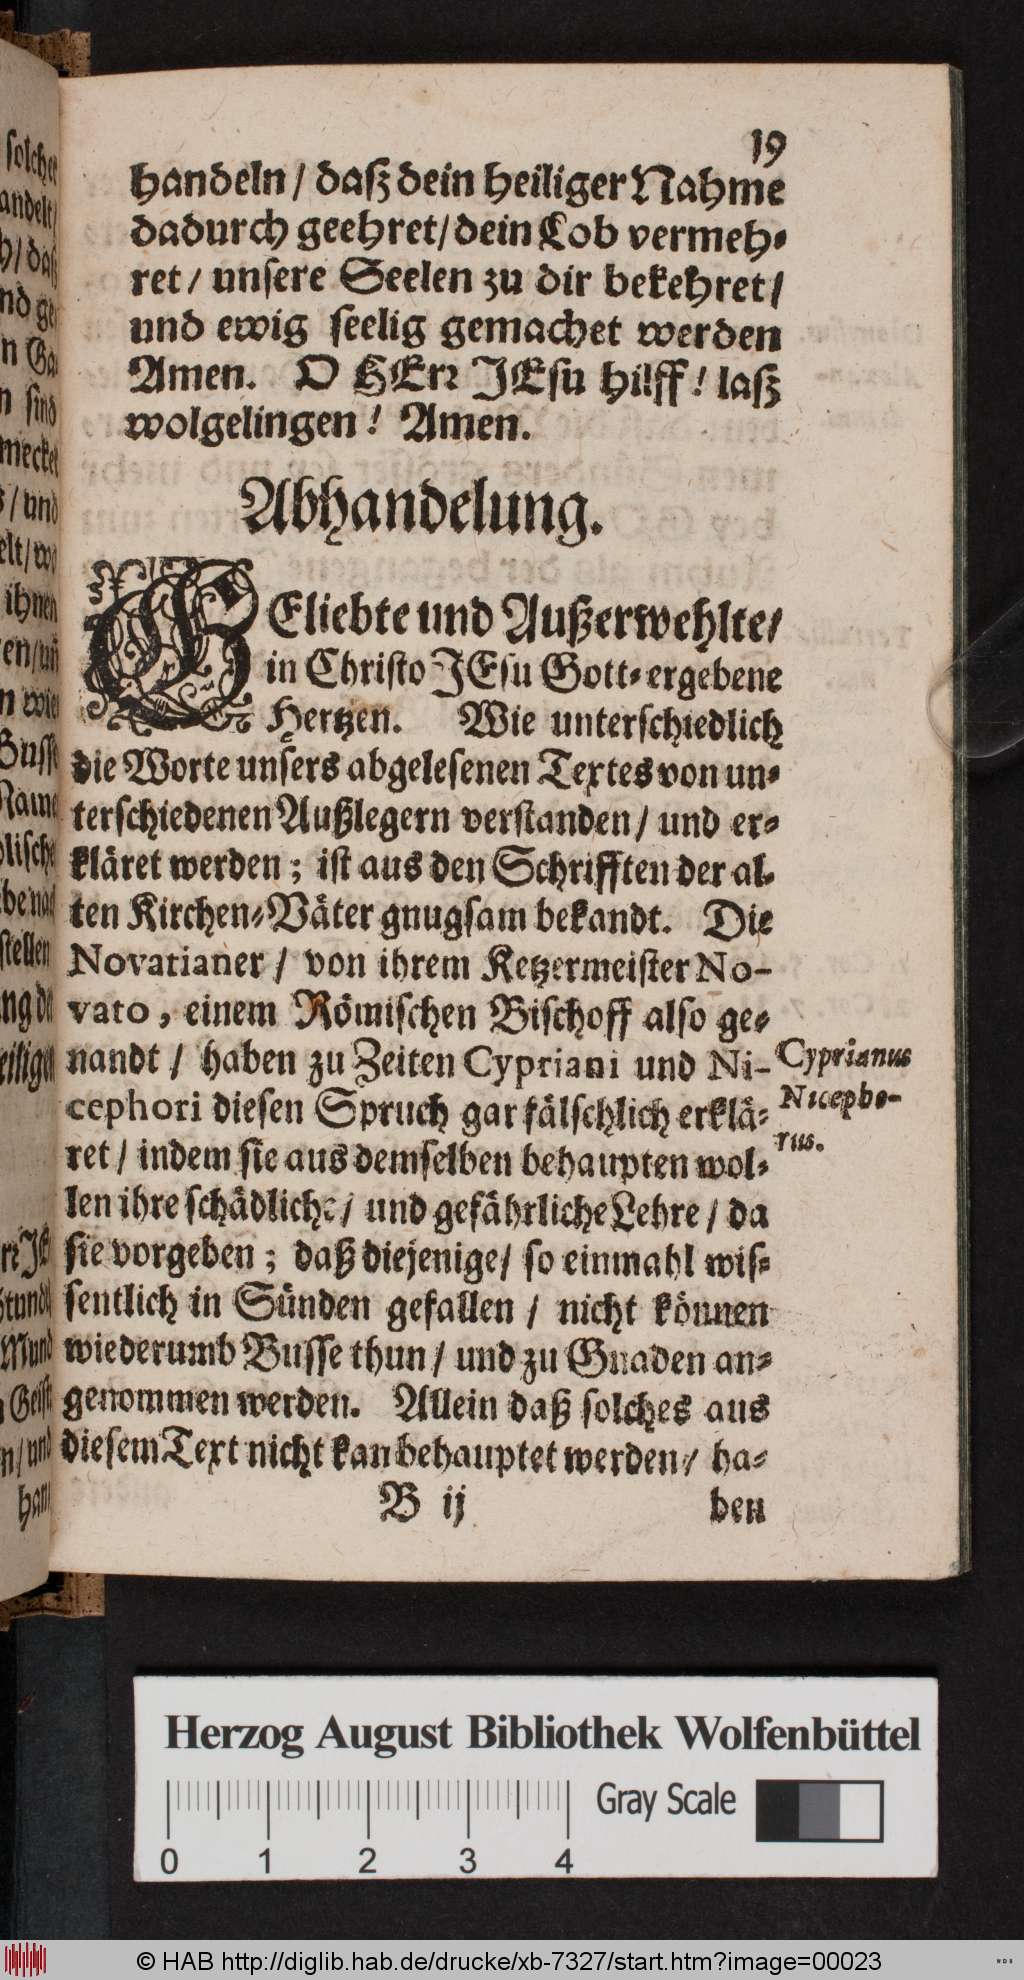 19
handeln / daß dein heiliger Nahme
dadurch geehret / dein Lob vermeh-
ret / unsere Seelen zu dir bekehret /
und ewig seelig gemachet werden
Amen. O HErr JEsu hilff! laß
wolgelingen! Amen.
Abhandelung.
GEliebte und Außerwehlte /
in Christo JEsu Gott-ergebene
Hertzen. Wie unterschiedlich
die Worte unsers abgelesenen Textes von un-
terschiedenen Außlegern verstanden / und er-
kläret werden; ist aus den Schrifften der al-
ten Kirchen-Väter gnugsam bekandt. Die
Novatianer / von ihrem Ketzermeister No-
vato, einem Römischen Bischoff also ge-
nandt / haben zu Zeiten Cypriani und Ni-
Cyprianus
cephori diesen Spruch gar fälschlich erklä-
Nicepho-
rus.
ret / indem sie aus demselben behaupten wol-
len ihre schädliche / und gefährliche Lehre / da
sie vorgeben; daß diejenige / so einmahl wis-
sentlich in Sünden gefallen / nicht können
wiederumb Busse thun / und zu Gnaden an-
genommen werden. Allein daß solches aus
diesem Text nicht kan behauptet werden / ha-
B ij
ben
Herzog August Bibliothek Wolfenbüttel
Gray Scale
0 1 2 3 4
© HAB http://diglib.hab.de/drucke/xb-7327/start.htm?image=00023